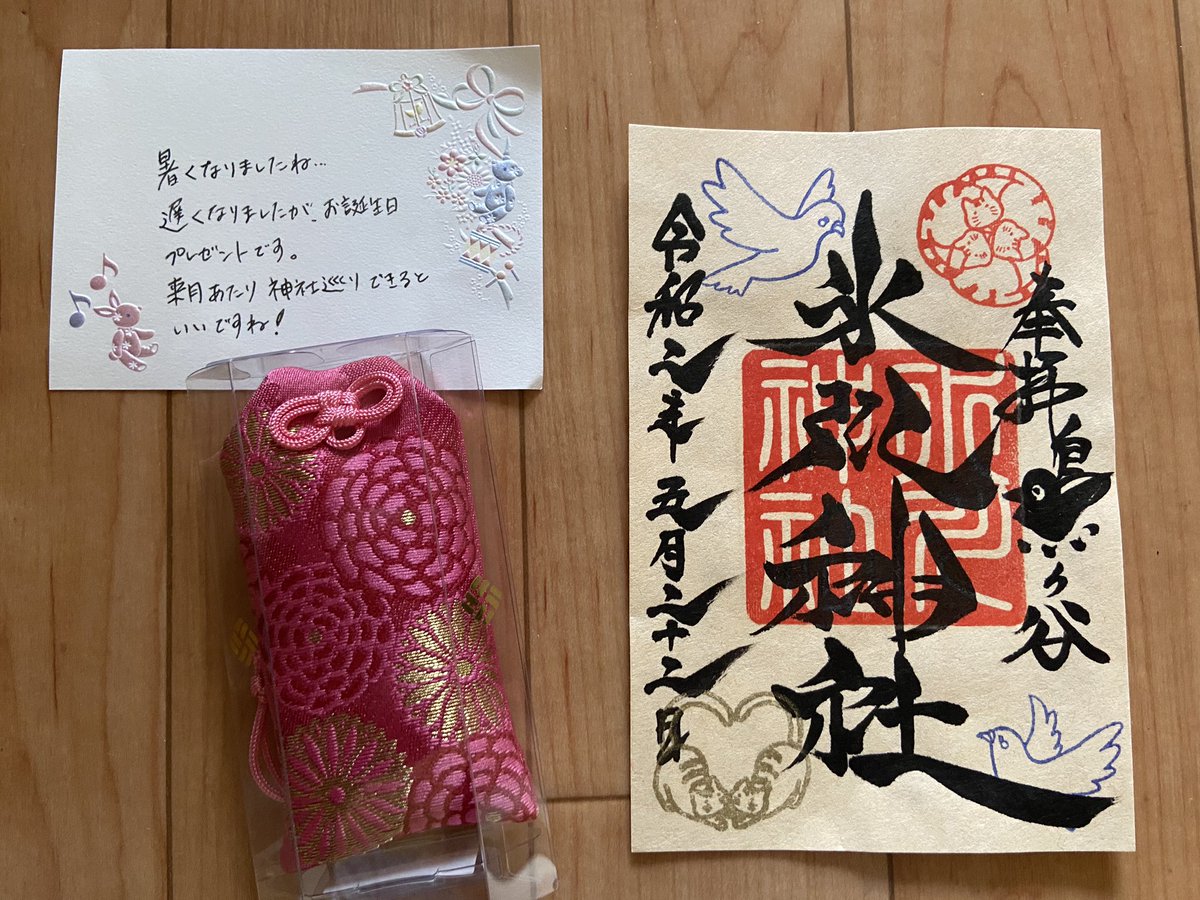 暑くなりましたね…
遅くなりましたが、お誕生日
プレゼントです。
来月あたり神社巡りできると
いいですね!
奉拝 鳩ヶ谷
氷川神社
氷川
神社
令和二年五月二十二日